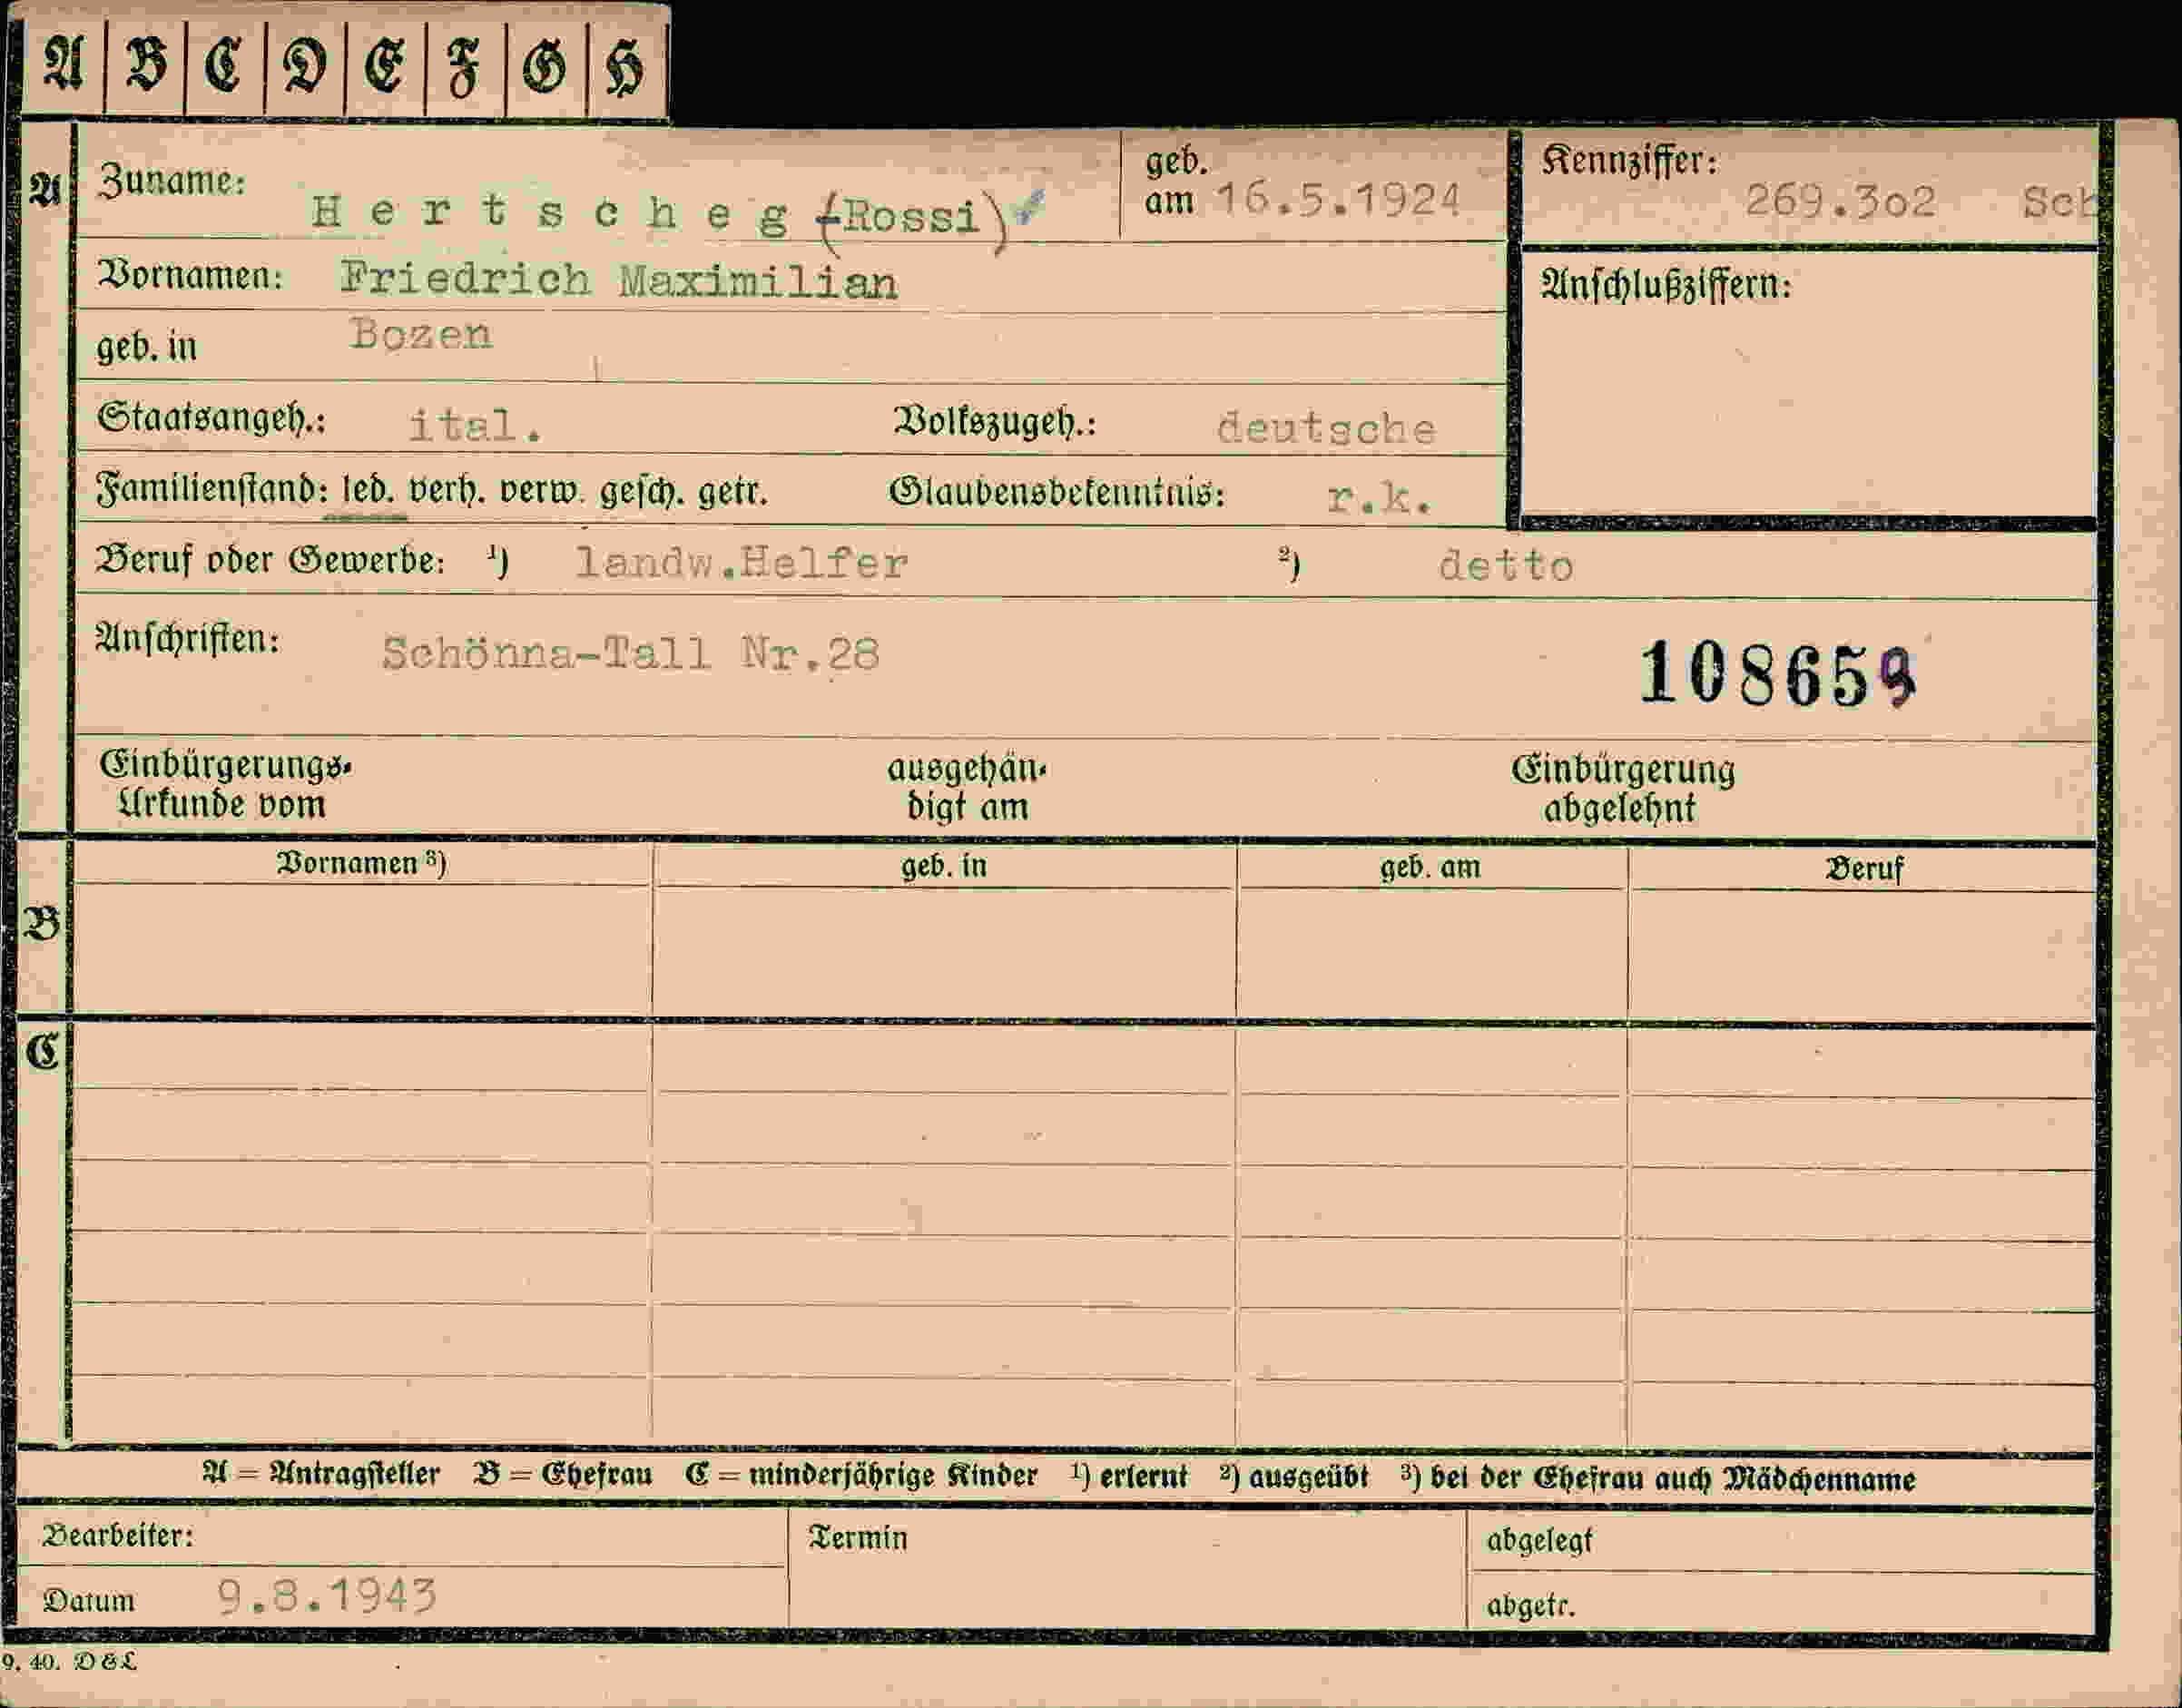 A B C D E F G H
A
Zuname: Hertscheg (Rossi)
geb. am 16.5.1924
Kennziffer: 269.3o2 Sch
Vornamen: Friedrich Maximilian
Anschlußziffern:
geb. in Bozen
Staatsangeh.: ital. Volkszugeh.: deutsche
Familienstand: led. verh. verw. gesch. getr. Glaubensbekenntnis: r.k.
Beruf oder Gewerbe: ¹) landw.Helfer ²) detto
Anschriften: Schönna-Tall Nr.28
108659
Einbürgerungs-Urkunde vom ausgehändigt am Einbürgerung abgelehnt
Vornamen ³) geb. in geb. am Beruf
B
C
A = Antragsteller B = Ehefrau C = minderjährige Kinder ¹) erlernt ²) ausgeübt ³) bei der Ehefrau auch Mädchenname
Bearbeiter: Termin abgelegt
Datum 9.8.1943 abgetr.
9. 40. D & L